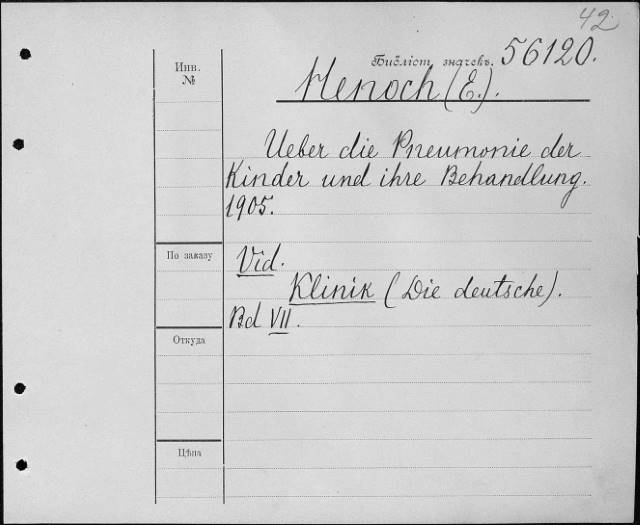 42
Библіот. значекъ. 56120.
Инв.
№
Henoch (E.).
Ueber die Pneumonie der
Kinder und ihre Behandlung.
1905.
По заказу
Vid.
Klinik (Die deutsche).
Bd VII.
Откуда
Цѣна